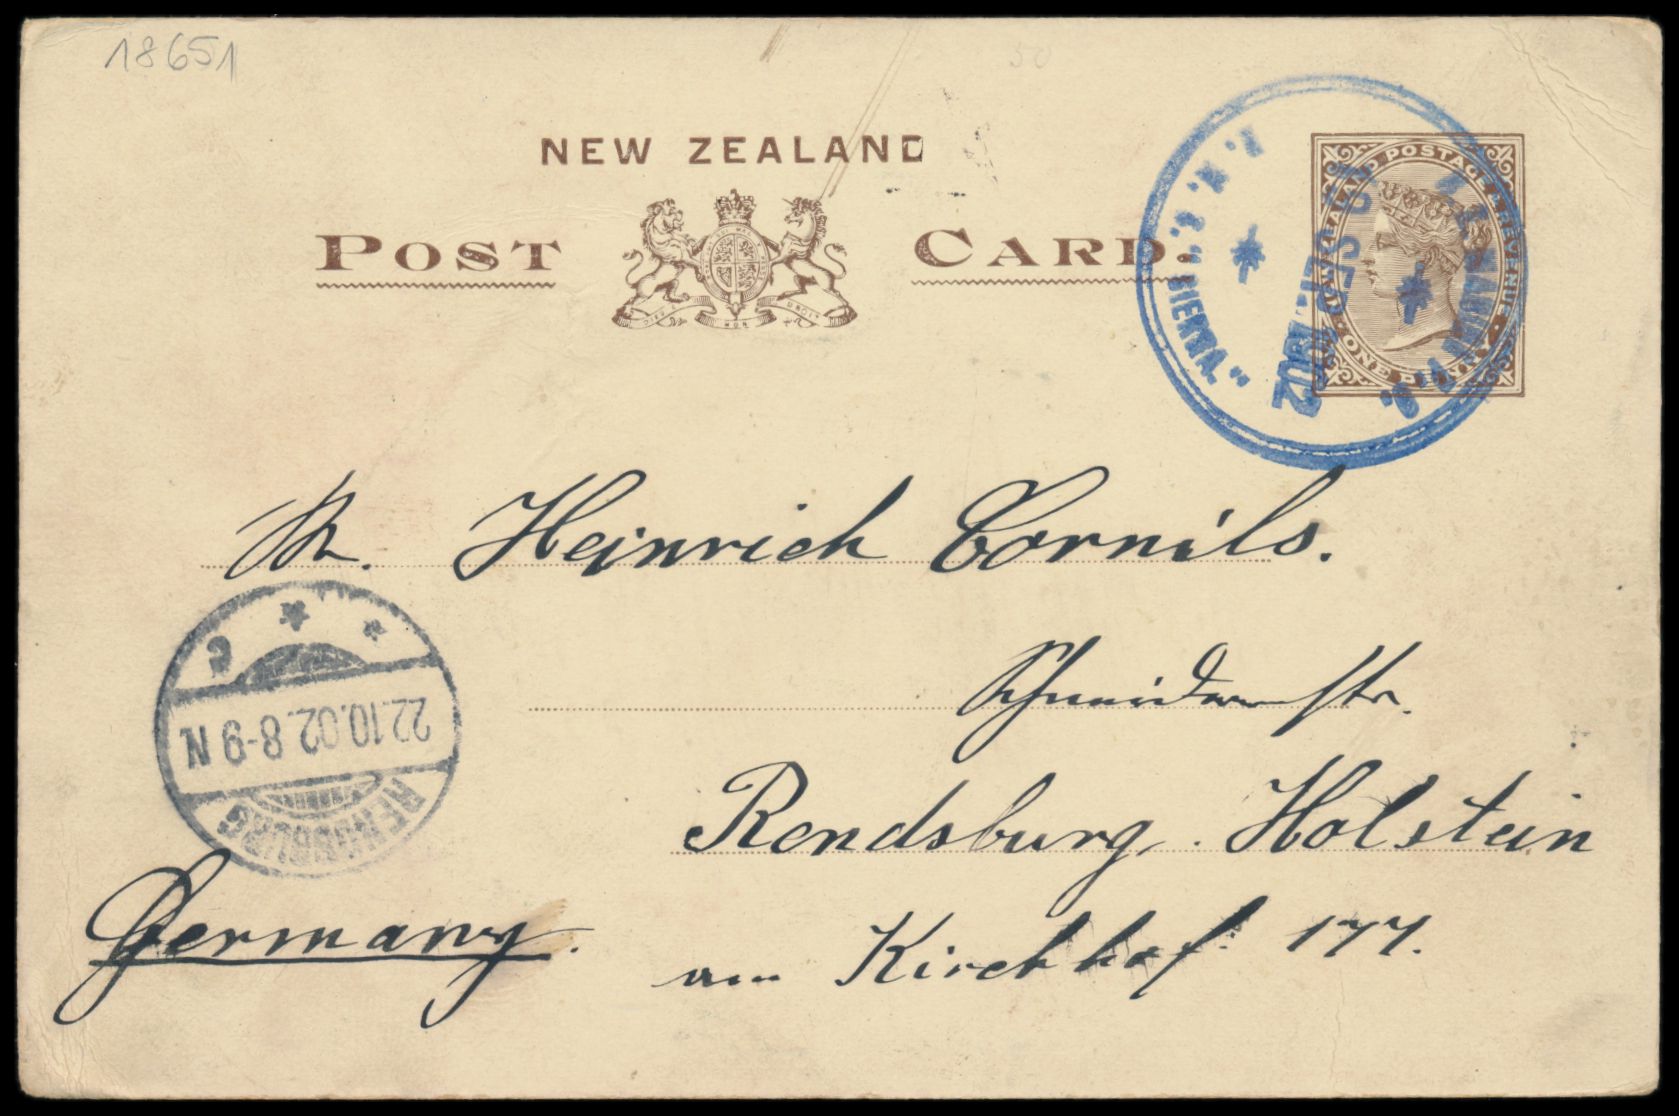 18651
50
NEW ZEALAND
POST CARD.
DIEU ET MON DROIT
POSTAGE & REVENUE
ONE PENNY
"SIERRA."
SEP
1902
Heinrich Cornils.
str.
Rendsburg. Holstein
am Kirchhof 177.
Germany.
22.10.02.8-9 N
RENDSBURG